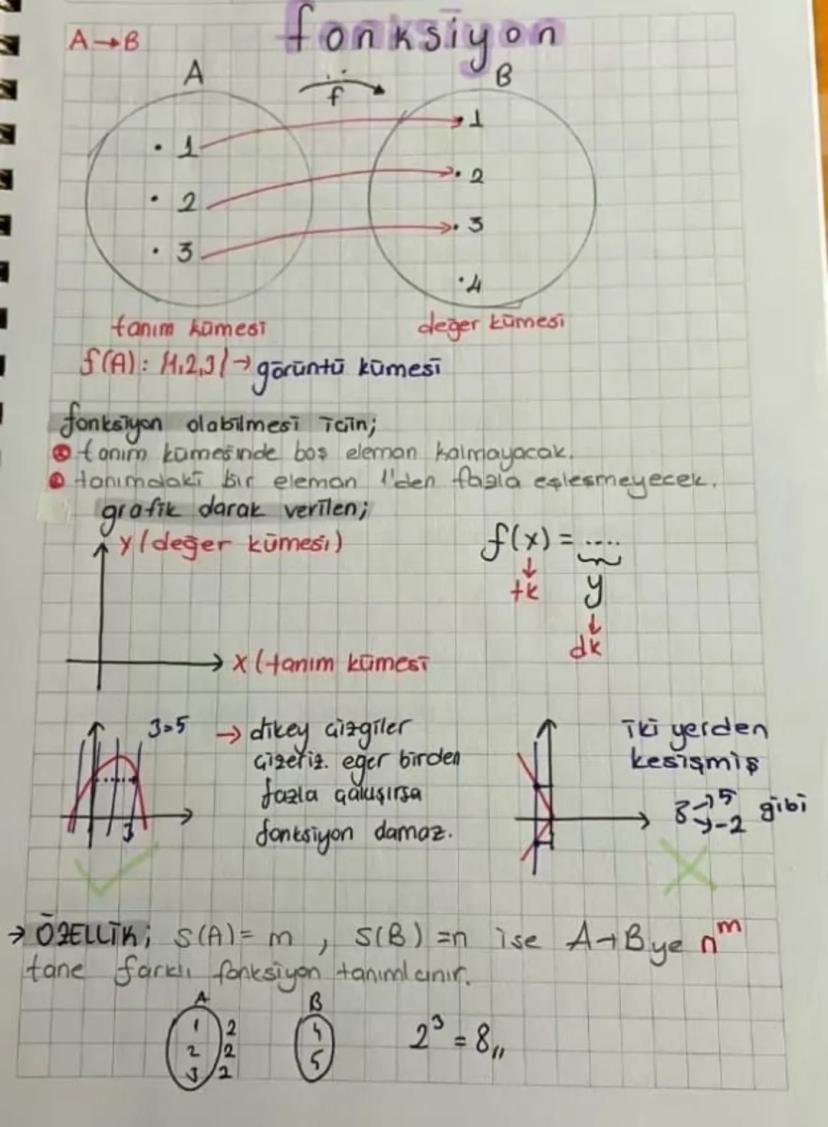 fonksiyon
A→B
A
f
B
1
1
2
2
3
3
4
tanım kümesi
değer kümesi
f(A): {1,2,3} → görüntü kümesi
fonksiyon olabilmesi için;
tanım kümesinde boş eleman kalmayacak.
tanımdaki bir eleman 1'den fazla eşleşmeyecek.
grafik olarak verilen;
y (değer kümesi)
f(x) = ....
tk
y
dk
x (tanım kümesi
3→5 → dikey çizgiler
çizeriz. eğer birden
fazla çakışırsa
fonksiyon olamaz.
3
iki yerden
kesişmiş
3→5 →-2 gibi
→ ÖZELLİK; s(A) = m , s(B) = n ise A→B ye n^m
tane farklı fonksiyon tanımlanır.
A
B
1 2
2 2
3 2
4
5
2³ = 8,,